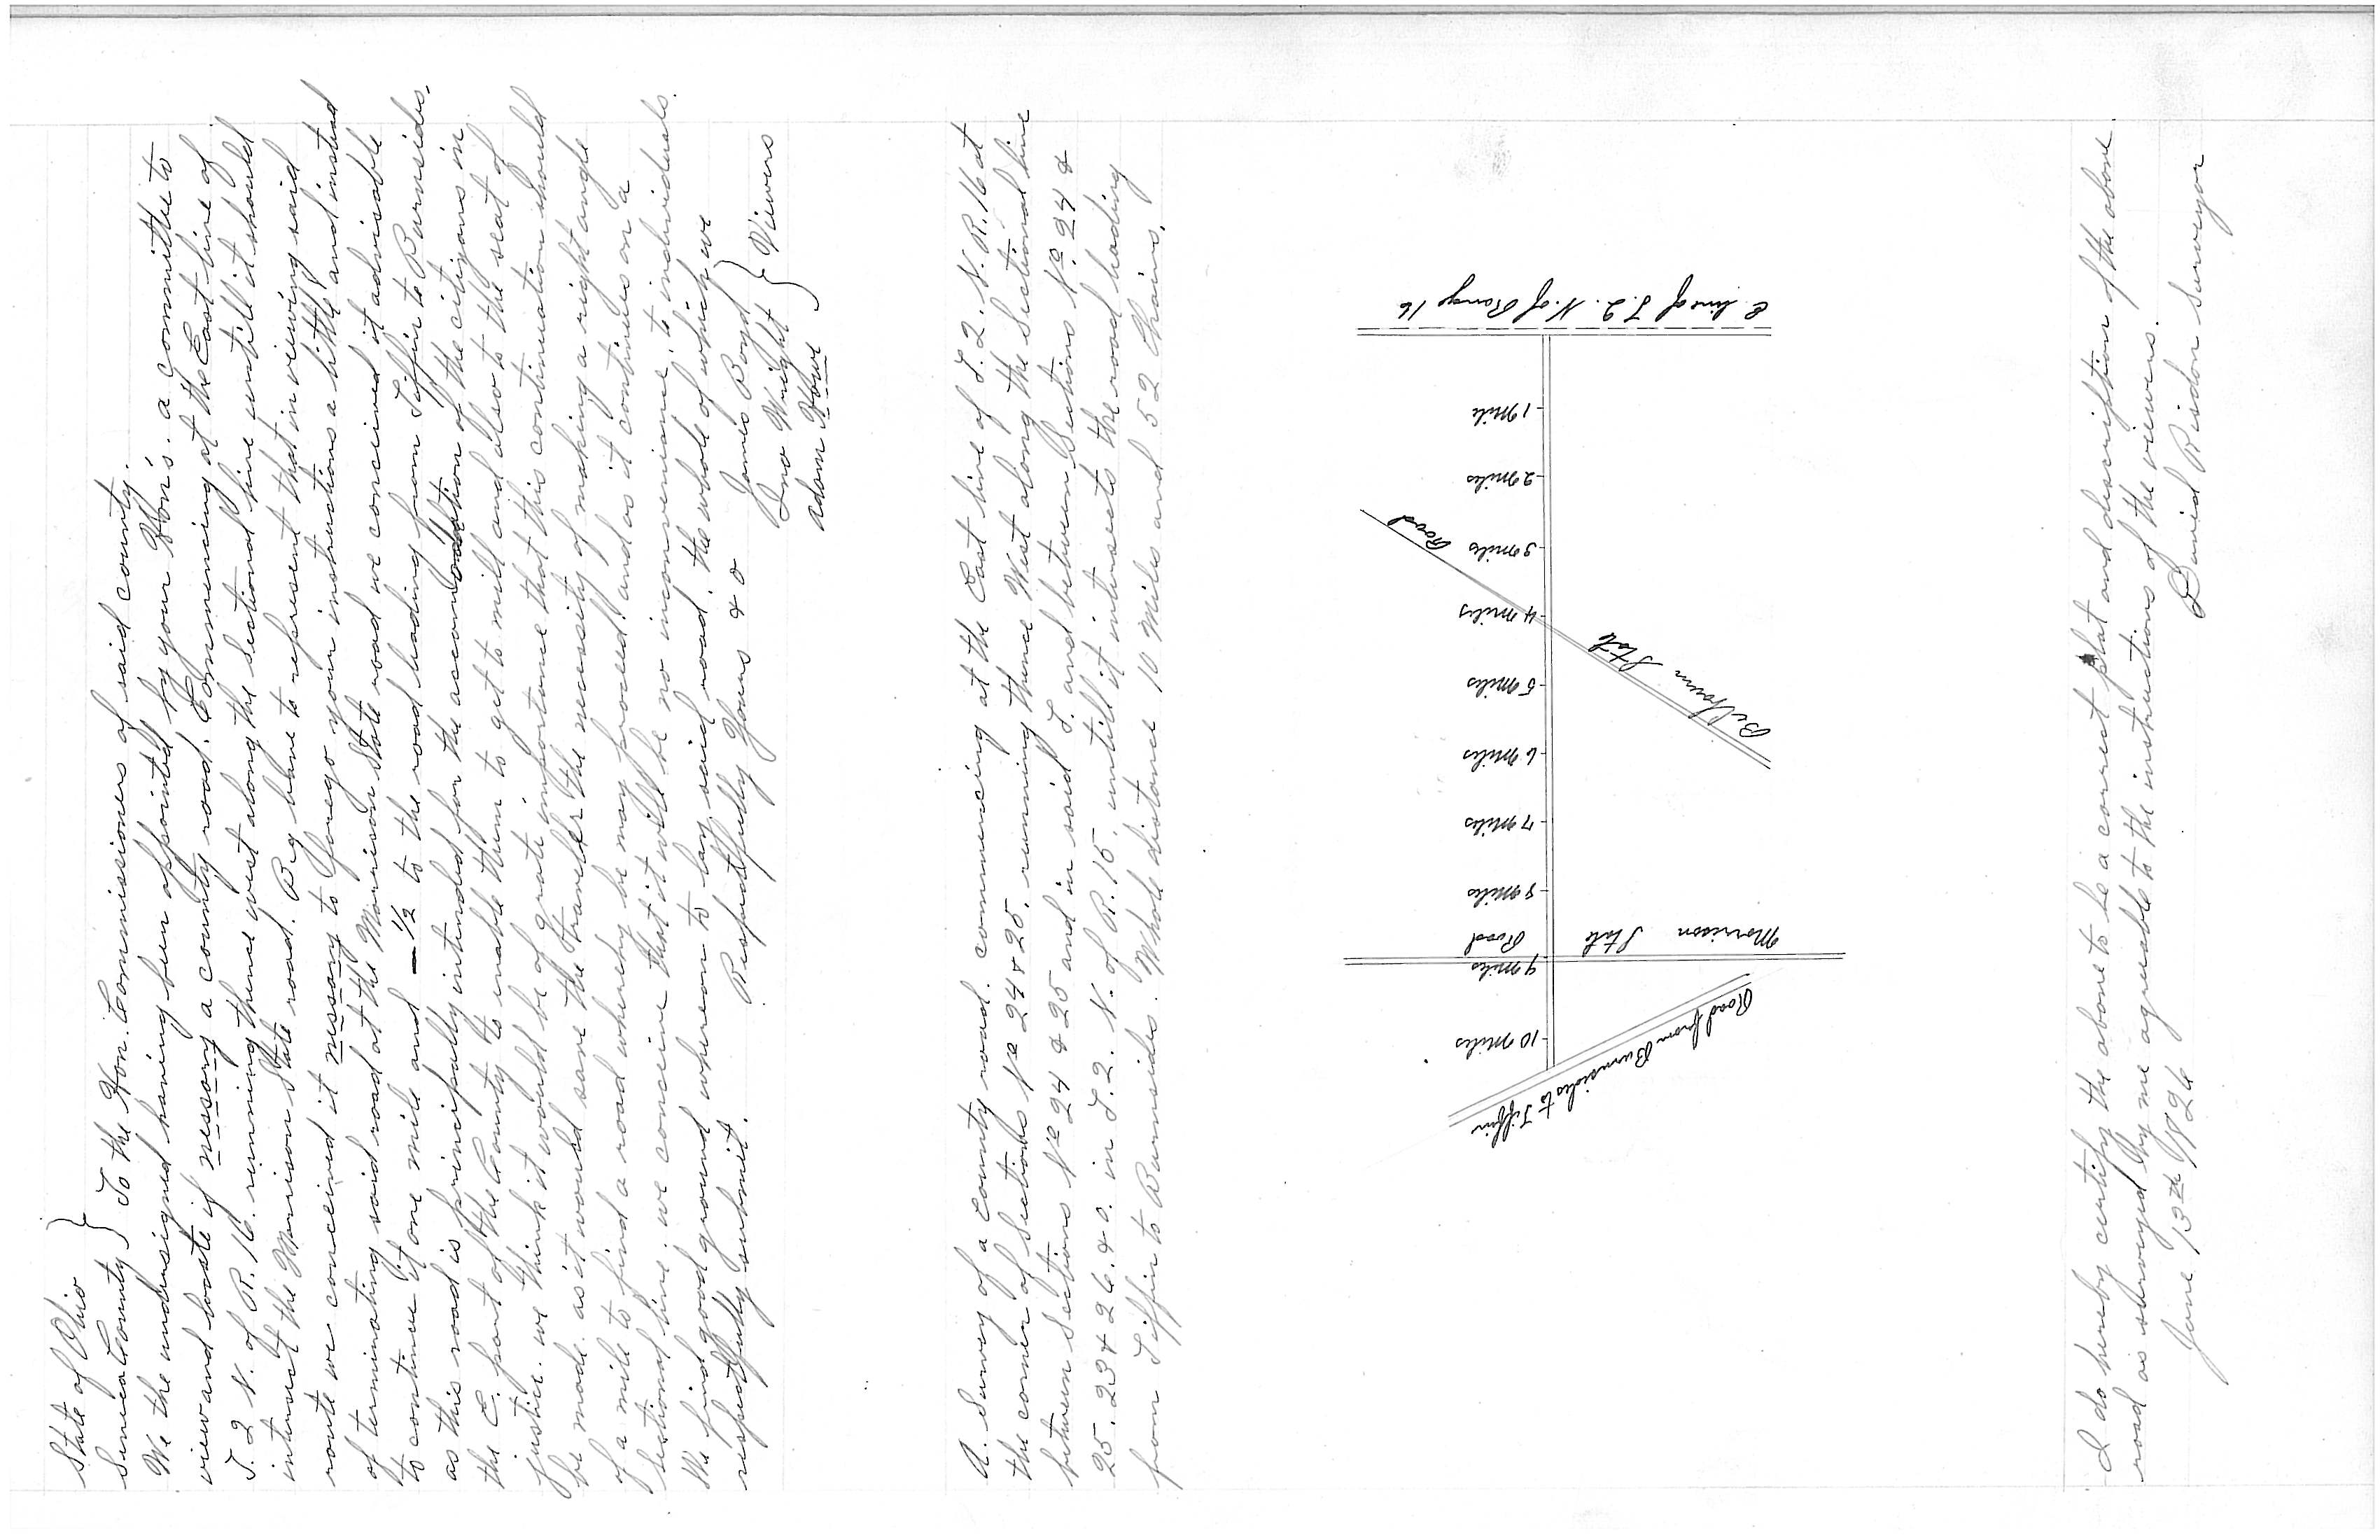 State of Ohio }
Seneca County } To the Hon. Commissioners of said county.
We the undersigned having been appointed by your Hon's. a committee to
view and locate if nessary a county road. Commencing at the East line of
T. 2 N. of R. 16. running thence west along the sectional line untill it should
intersect the Morrison State road. Beg leave to represent that in viewing said
route we conceived it nessary to forego your instructions a little and instead
of terminating said road at the Morrison State road we conceived it advisable
to continue it one mile and – 1/2 to the road leading from Tiffin to Burnsides,
as this road is principally intended for the accomodation of the citizens in
the E. part of the County to enable them to get to mill and also to the seat of
justice. we think it would be of grate importance that this continuation should
be made. as it would save the traveller the necessity of making a right angle
of a mile to find a road whereby he may proceed. and as it continues on a
sectional line. we conceive that it will be no inconvenience to individuals.
We find good ground whereon to lay said road. the whole of which we
respectfully submit.
Respectfully Yours & c
James Boyd
Jno Wright } Viewers
Adam Howe
A. Survey of a County road. commencing at the East line of T. 2. N. R. 16 at
the corner of Sections No 24 & 25. running thence West along the Sectional line
between Sections No 24 & 25 and in said T. and between Sections No. 24 &
25. 23 & 26. & c. in T. 2. N. of R. 15. untill it intersects the road leading
from Tiffin to Burnsides. Whole distance 10 miles and 52 Chains.
E. line of T. 2. N. of Range 16
1 Mile
2 miles
3 miles
4 miles
5 miles
6 miles
7 miles
8 miles
9 miles
10 miles
State Road
Morrison State Road
Road from Burnsides to Tiffin
I do hereby certify the above to be a correct plat and description of the above
road as surveyed by me agreeable to the instructions of the viewers.
June 13th 1826
David Risdon Surveyor